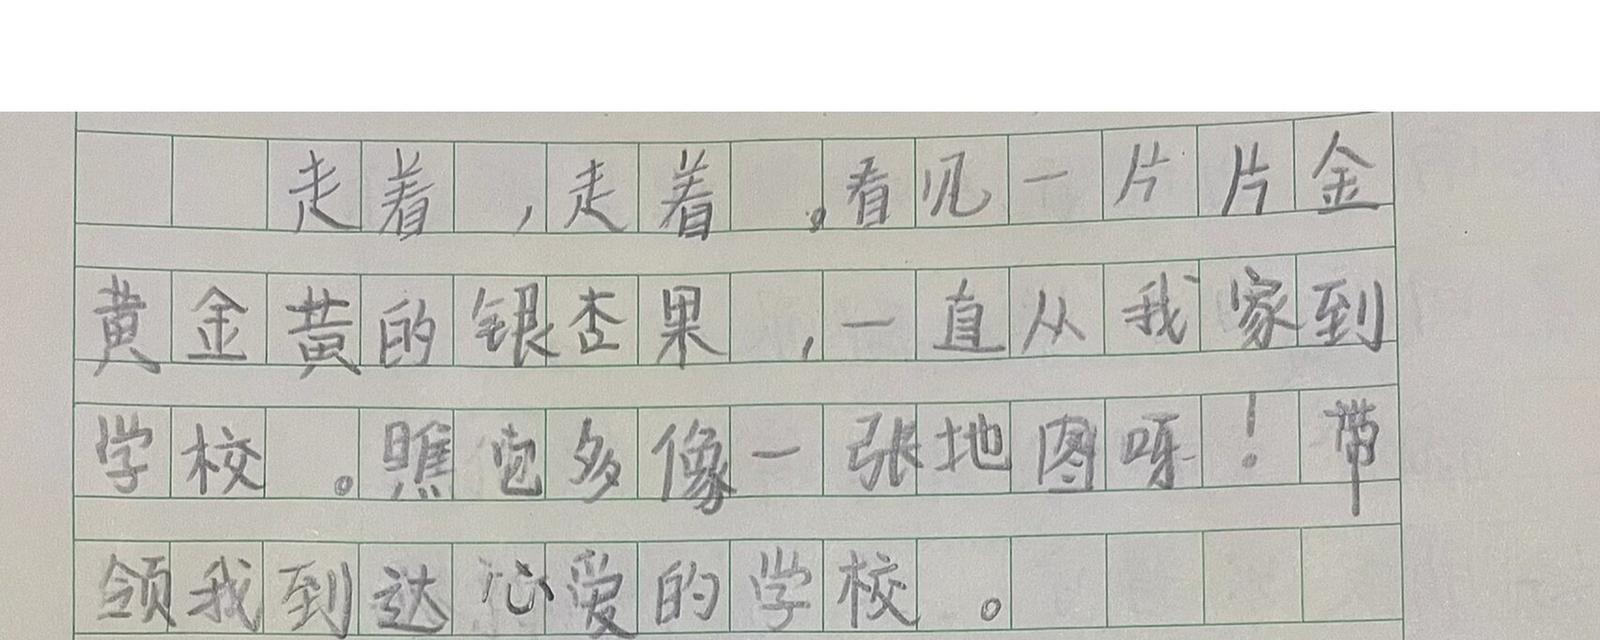 走着，走着。看见一片片金
黄金黄的银杏果，一直从我家到
学校。瞧它多像一张地图呀！带
领我到达心爱的学校。